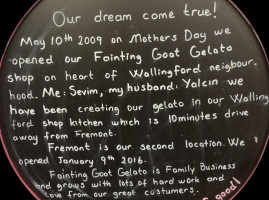 Our dream come true!
May 10th 2009 on Mothers Day we
opened our Fainting Goat Gelato
shop on heart of Wallingford neigbour.
hood. Me: Sevim, my husband: Yalcin we
have been creating our gelato in our Walling
ford shop kitchen which is 10minutes drive
away from Fremont.
Fremont is our second location. We
opened January 9th 2016.
Fainting Goat Gelato is Family Business
and grows with lots of hard work and
love from our great custumers.
good!